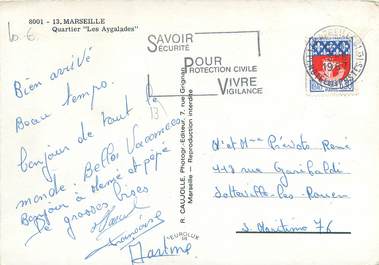 8001 - 13. MARSEILLE
Quartier "Les Aygalades"
SAVOIR
SÉCURITÉ
POUR
PROTECTION CIVILE
VIVRE
VIGILANCE
Bien arrivé
Beau temps.
bonjour de tout le
monde. Belles Vacances
Bonjour à Mémé et pépé
De grosses bises
Françoise
Martine
R. CAUJOLLE, Photogr.-Editeur, 7, rue Grignan
Marseille - Reproduction interdite
EUROLUX
Mr et Mme Prévots René
118 rue Garibaldi
Sotteville-les-Rouen
S. Maritime 76